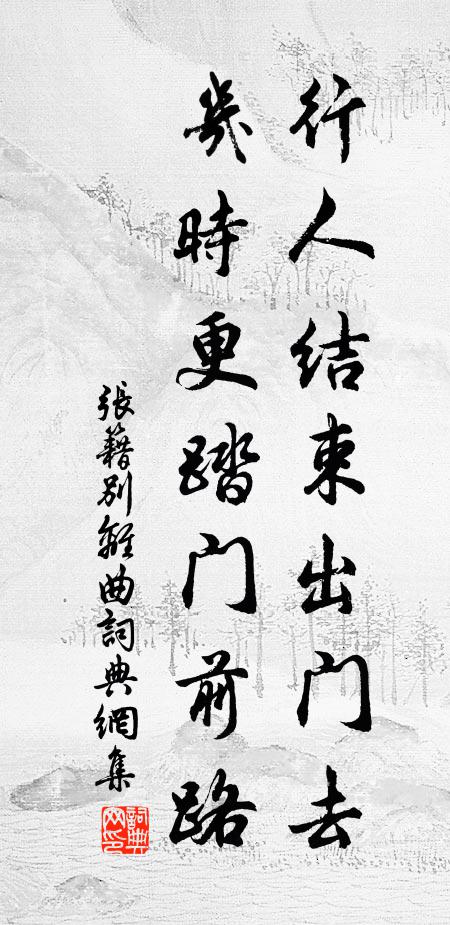 行人结束出门去
幾時更踏门前路
張籍别離曲詞典網集
詞典网印